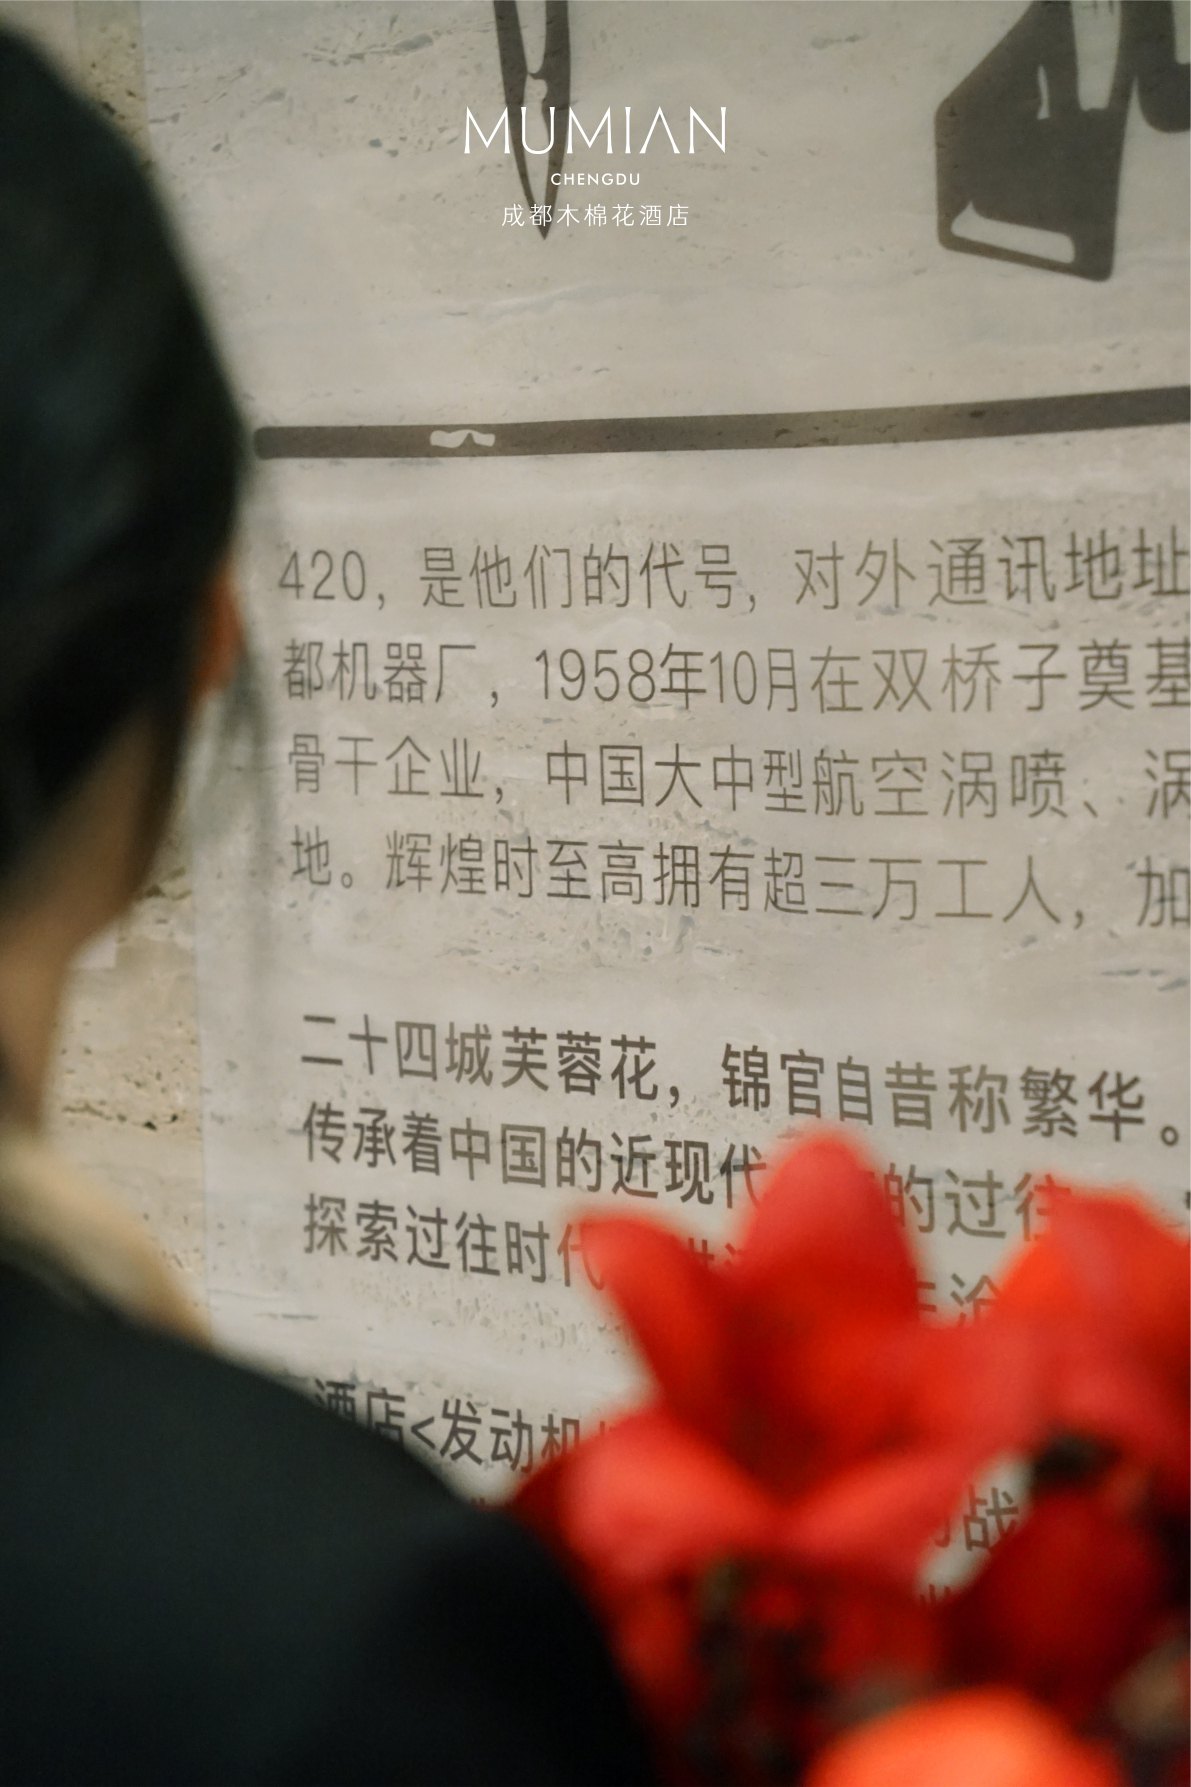 MUMIAN
CHENGDU
成都木棉花酒店
420，是他们的代号，对外通讯地址
都机器厂，1958年10月在双桥子奠基
骨干企业，中国大中型航空涡喷、涡
地。辉煌时至高拥有超三万工人，加
二十四城芙蓉花，锦官自昔称繁华。
传承着中国的近现代 的过往
探索过往时代
酒店<发动机
战